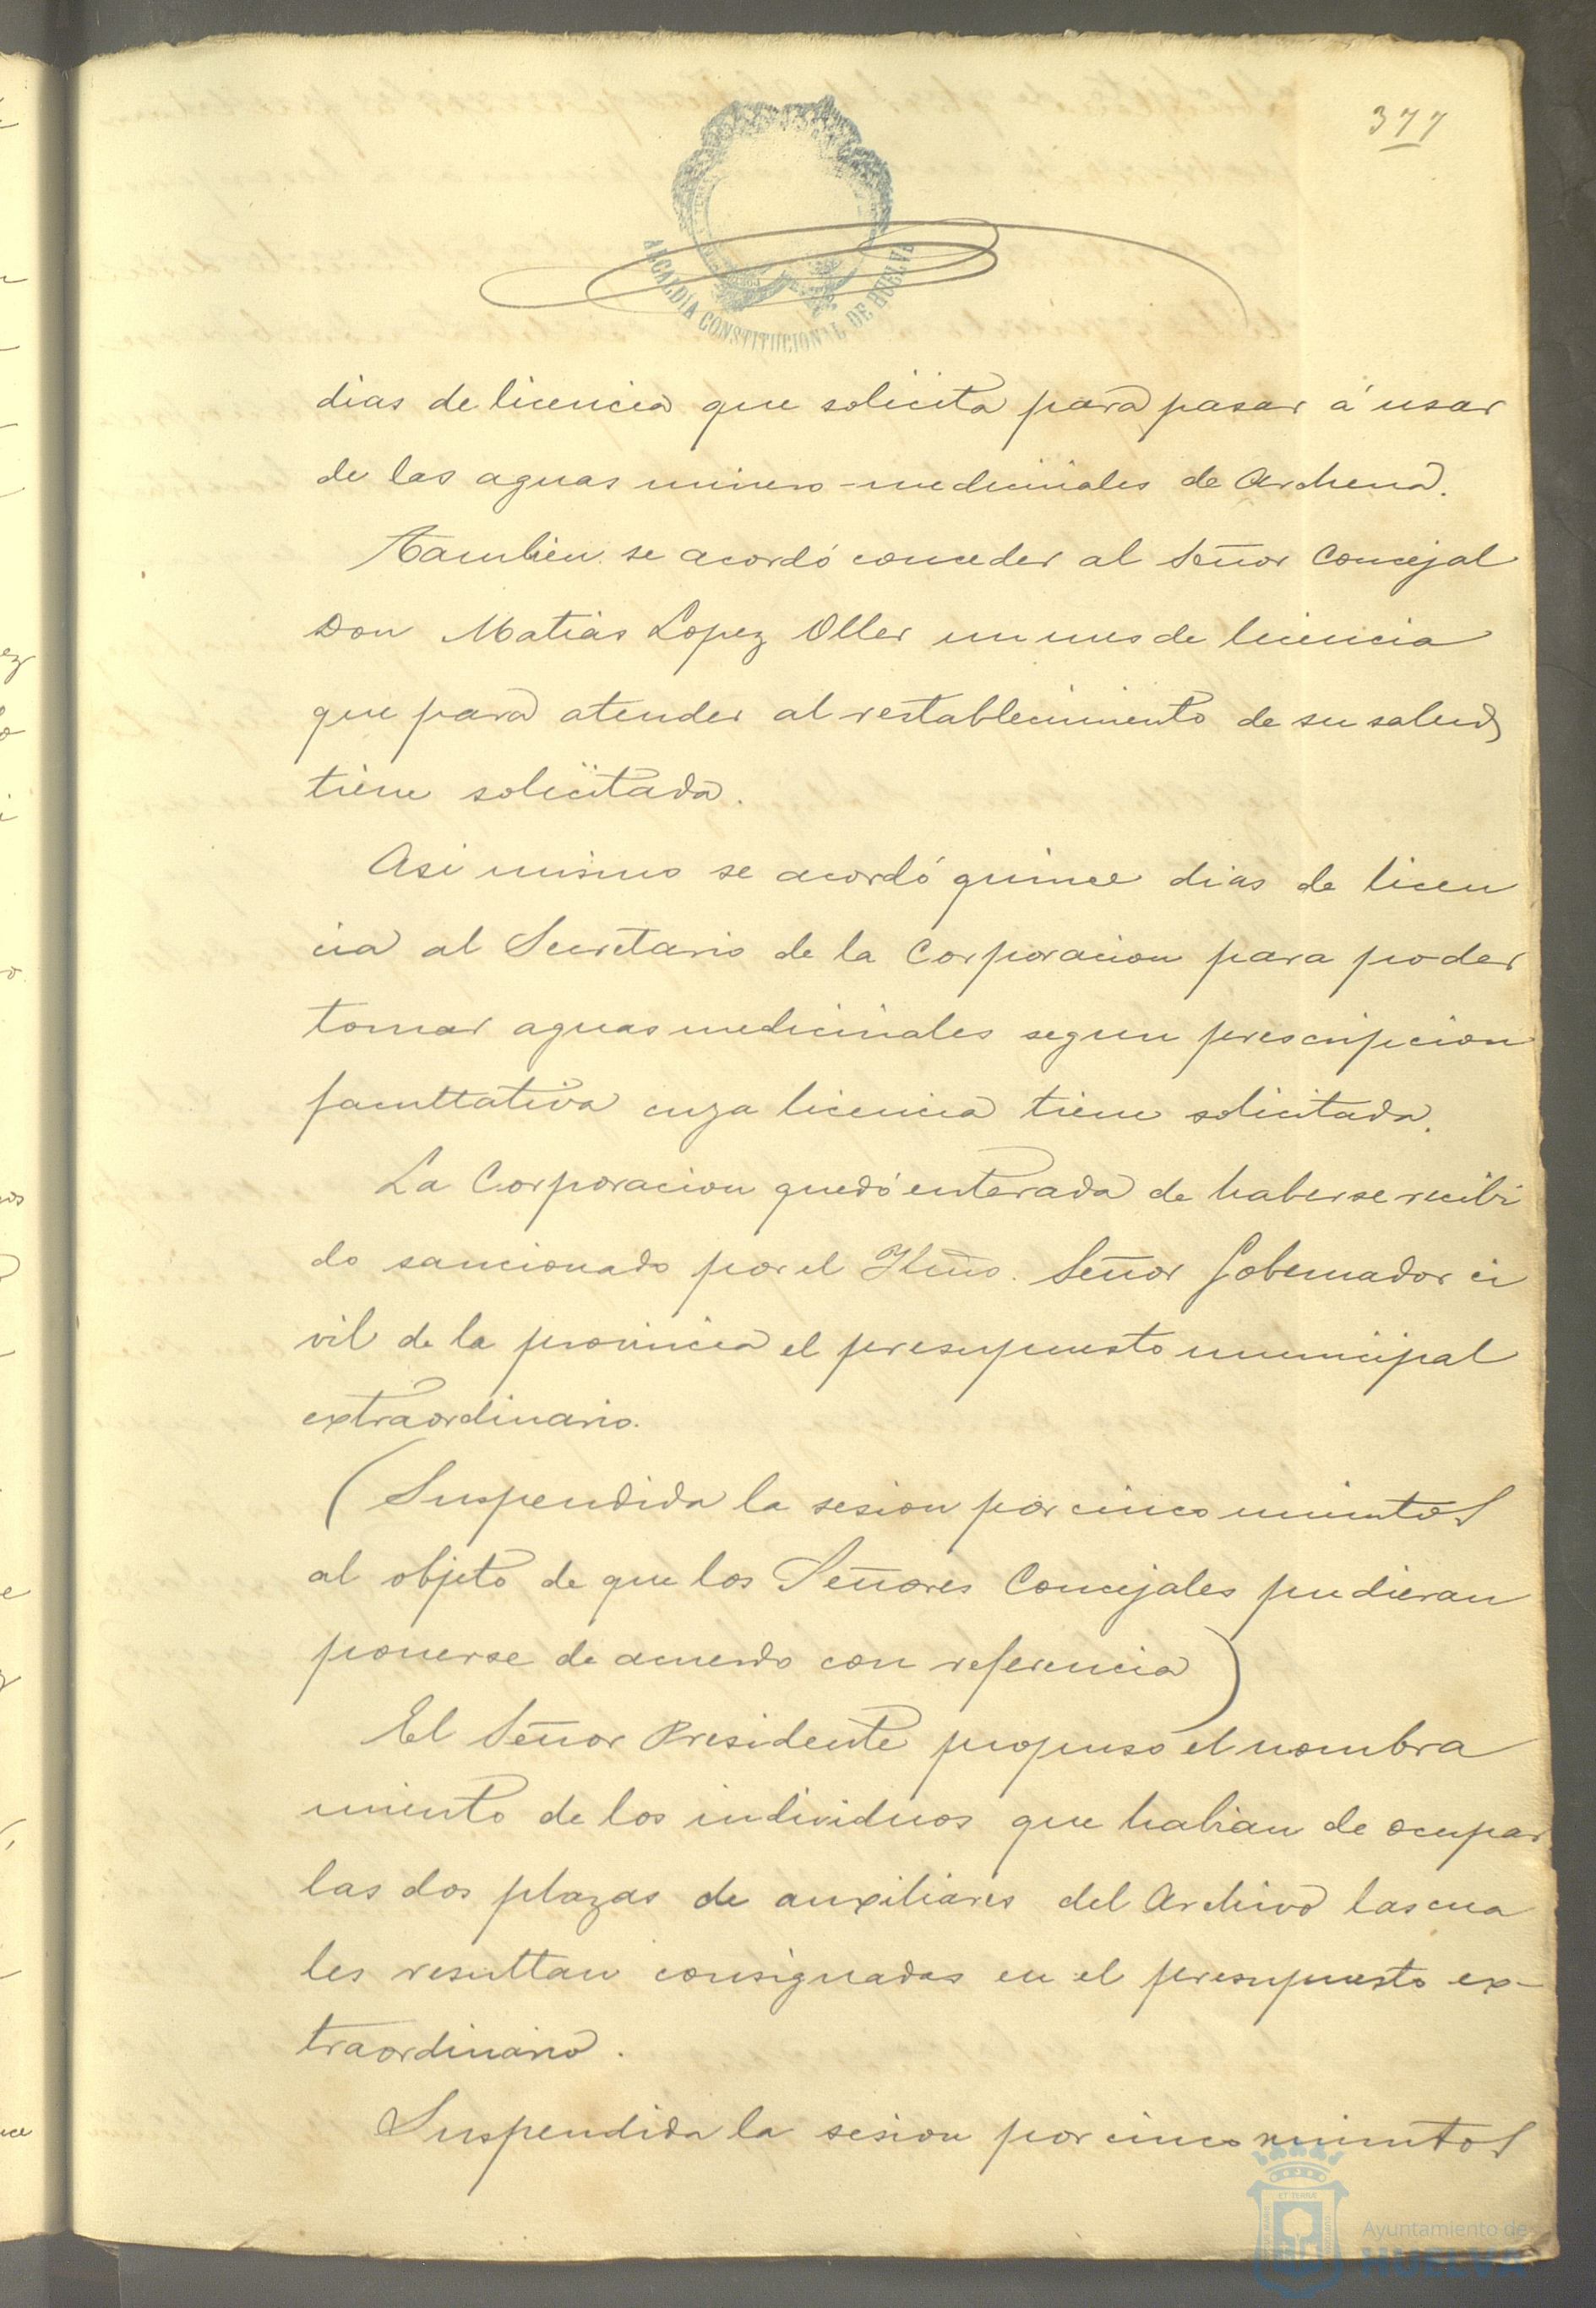 377
ALCALDÍA CONSTITUCIONAL DE HUELVA
dias de licencia que solicita para pasar á usar
de las aguas minero-medicinales de Archena.
Tambien se acordó conceder al Señor Concejal
Don Matias Lopez Oller un mes de licencia
que para atender al restablecimiento de su salud
tiene solicitada.
Asi mismo se acordó quince dias de licen
cia al Secretario de la Corporacion para poder
tomar aguas medicinales segun prescripcion
facultativa cuya licencia tiene solicitada.
La Corporacion quedó enterada de haberse recibi
do sancionado por el Iltmo. Señor Gobernador ci
vil de la provincia el presupuesto municipal
extraordinario.
(Suspendida la sesion por cinco minutos
al objeto de que los Señores Concejales pudieran
ponerse de acuerdo con referencia)
El Señor Presidente propuso el nombra
miento de los individuos que habian de ocupar
las dos plazas de auxiliares del Archivo las cua
les resultan consignadas en el presupuesto ex-
traordinario.
Suspendida la sesion por cinco minutos
Ayuntamiento de
HUELVA